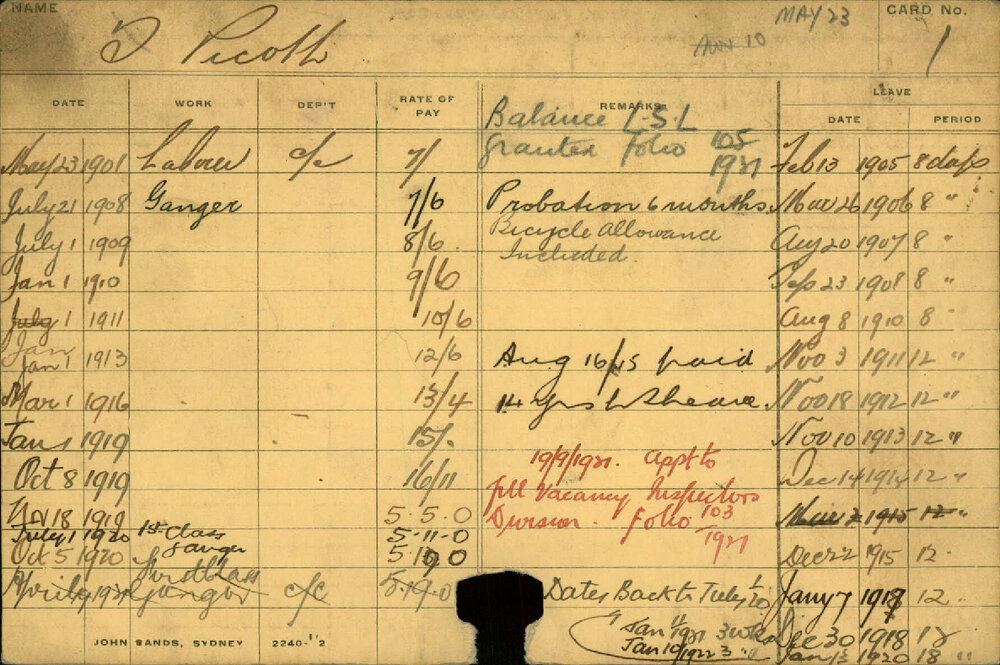 NAME
MAY 23
CARD No.
10
1
DATE WORK DEP'T RATE OF PAY REMARKS LEAVE
DATE PERIOD
Balance L-S-L
May 23 1901 Laborer c/c 7/ Granted Folio 105 Feb 13 1905 8 days
1921
July 21 1908 Ganger 7/6 Probation 6 months. Mar 26 1906 8 "
July 1 1909 8/6 Bicycle Allowance Aug 20 1907 8 "
Included.
Jan 1 1910 9/6 Feb 23 1908 8 "
July 1 1911 10/6 Aug 8 1910 8 "
Jan
Jan 1 1913 12/6 Aug 16/15 paid Nov 3 1911 12 "
Mar 1 1916 13/4 14 yrs Nov 18 1912 12 "
Jan 1 1919 15/- Nov 10 1913 12 "
19/9/1921. Appt to
Oct 8 1919 16/11 Fill Vacancy Inspectors Dec 14 1914 12 "
Nov 18 1919 5-5-0 Division. Folio 103 Mar 2 1915 12 "
1921
July 1 1920 1st Class 5-11-0
Oct 5 1920 Ganger Dec 22 1915 12 "
April 1921 Ganger c/c 5-19-0 Dates Back to July Jany 7 1918 12 "
Jan 1921 3 wks Dec 30 1918
Jan 1922 3 " Jan 1920 18 "
JOHN SANDS, SYDNEY 2240-1'2